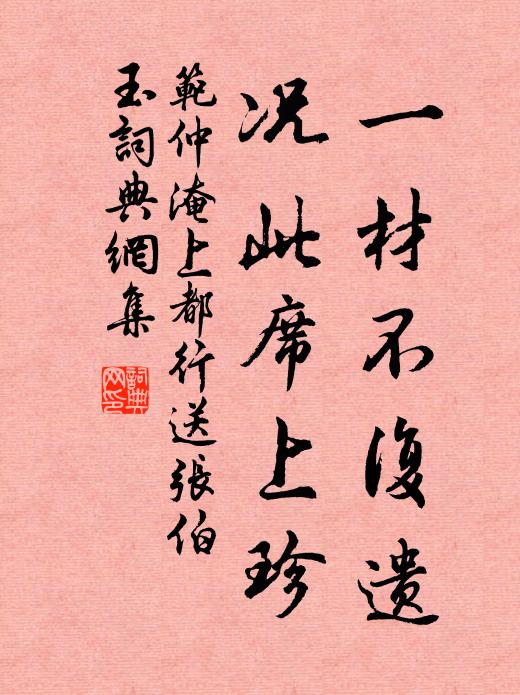 一材不復遗
况此席上珍
範仲淹上都行送張伯
玉詞典網集
詞典
网印